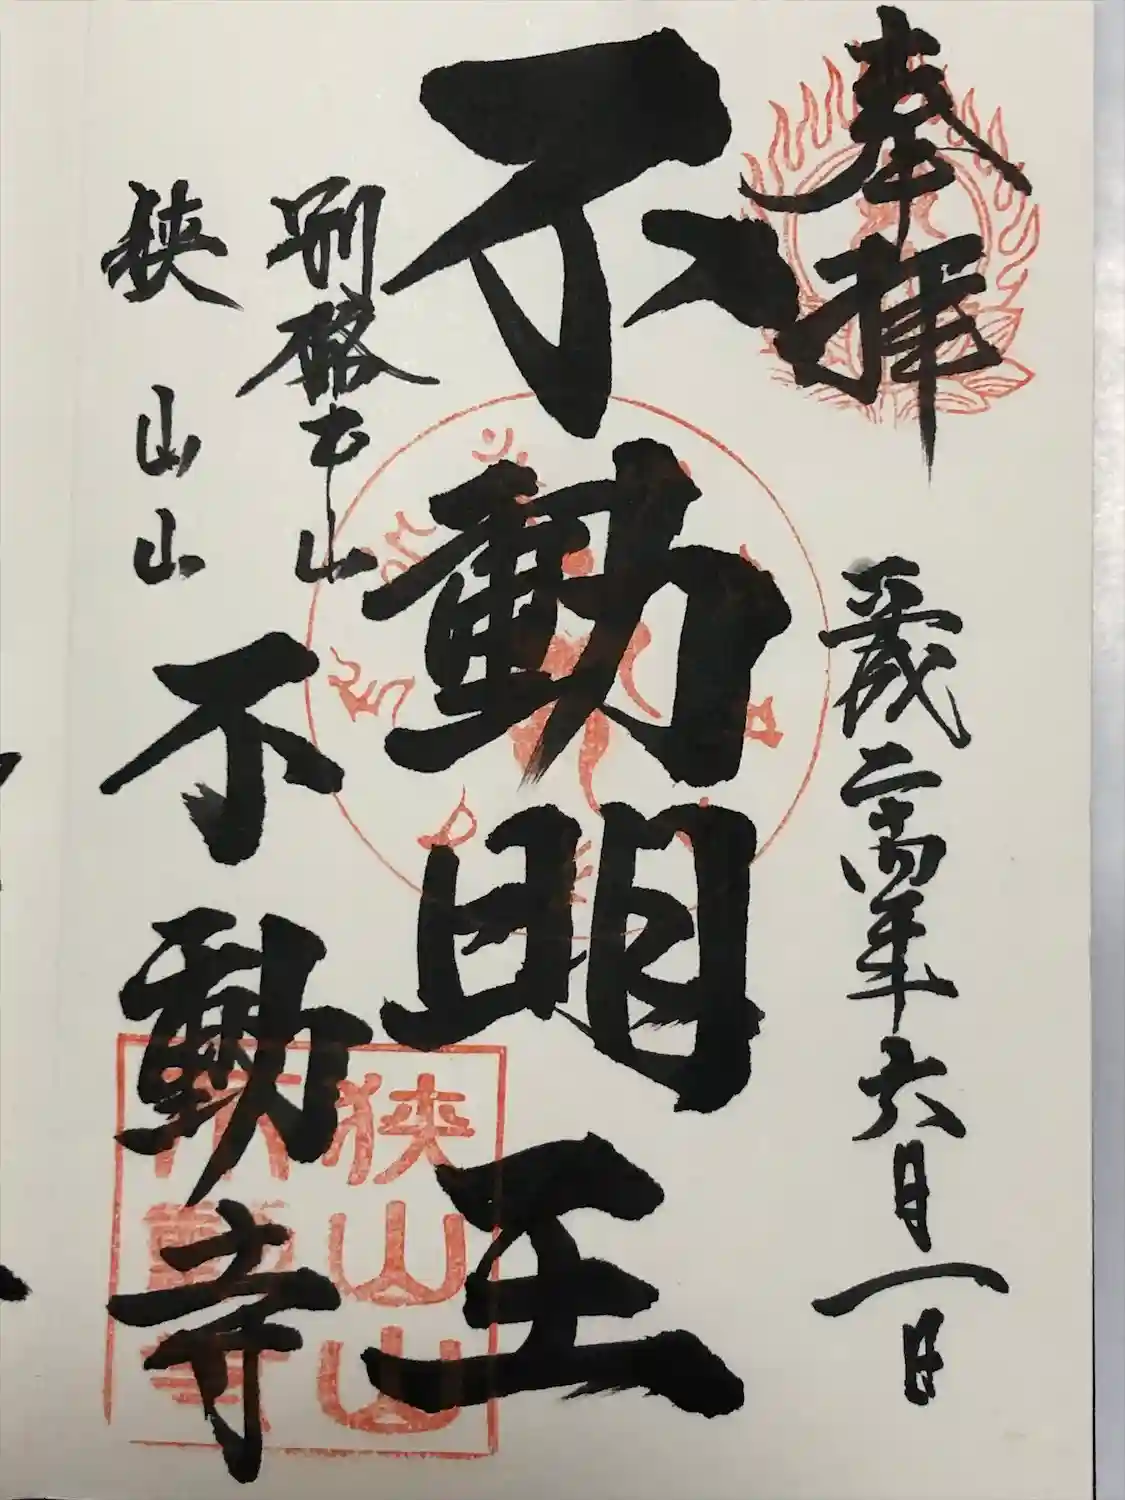 奉拝
平成二十四年六月一日
不動明王
別格本山
狭山山不動寺
狭山山
不動寺